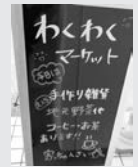 わくわく
マーケット
手作り雑貨
地元野菜や
コーヒー・お茶
あります!!